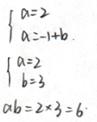 a=2
a=-1+b.
a=2
b=3
ab=2×3=6.